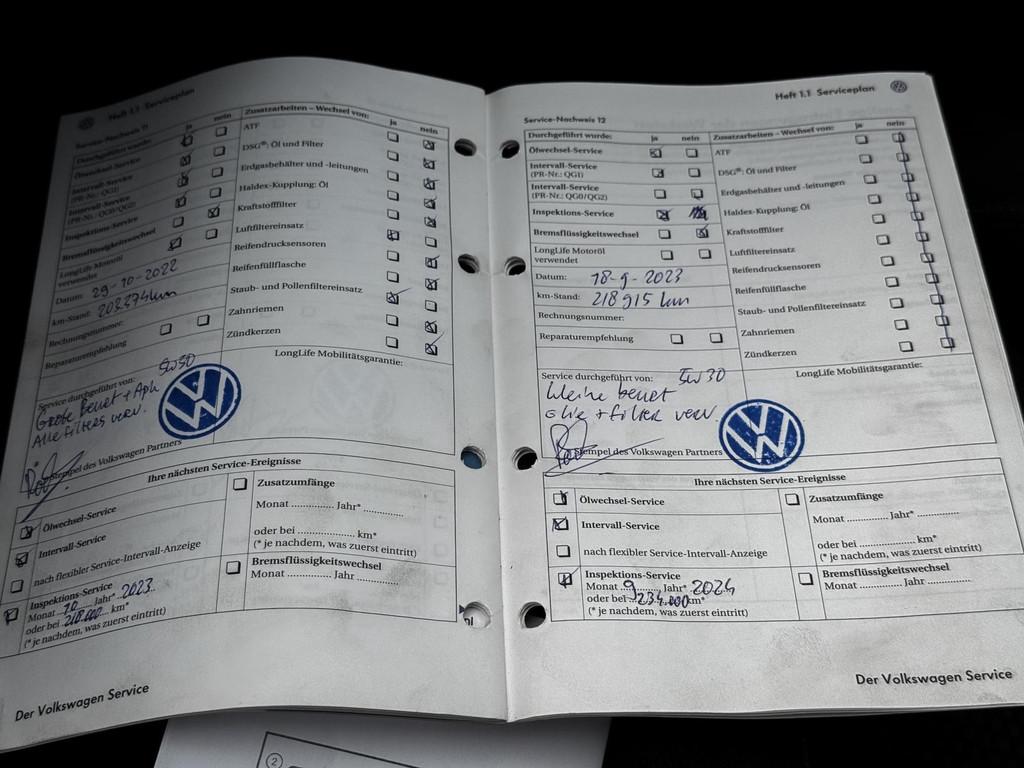 Heft 1.1 Serviceplan
Service-Nachweis 11
Durchgeführt wurde: ja nein
Ölwechsel-Service
Intervall-Service
(PR-Nr.: QG1)
Intervall-Service
(PR-Nr.: QG0/QG2)
Inspektions-Service
Bremsflüssigkeitswechsel
LongLife Motoröl
verwendet
Datum: 29-10-2022
km-Stand: 203374km
Rechnungsnummer:
Reparaturempfehlung
Zusatzarbeiten – Wechsel von: ja nein
ATF
DSG®: Öl und Filter
Erdgasbehälter und -leitungen
Haldex-Kupplung: Öl
Kraftstofffilter
Luftfiltereinsatz
Reifendrucksensoren
Reifenfüllflasche
Staub- und Pollenfiltereinsatz
Zahnriemen
Zündkerzen
Service durchgeführt von: 5w30
Alle filters verv.
Stempel des Volkswagen Partners
LongLife Mobilitätsgarantie:
Ihre nächsten Service-Ereignisse
Ölwechsel-Service
Intervall-Service
nach flexibler Service-Intervall-Anzeige
Inspektions-Service
Monat 10 Jahr* 2023
oder bei 218.000 km*
(* je nachdem, was zuerst eintritt)
Zusatzumfänge
Monat .............. Jahr* ..............
oder bei .................... km*
(* je nachdem, was zuerst eintritt)
Bremsflüssigkeitswechsel
Monat .............. Jahr ..............
Der Volkswagen Service
Heft 1.1 Serviceplan
Service-Nachweis 12
Durchgeführt wurde: ja nein
Ölwechsel-Service
Intervall-Service
(PR-Nr.: QG1)
Intervall-Service
(PR-Nr.: QG0/QG2)
Inspektions-Service
Bremsflüssigkeitswechsel
LongLife Motoröl
verwendet
Datum: 18-9-2023
km-Stand: 218915 km
Rechnungsnummer:
Reparaturempfehlung
Zusatzarbeiten – Wechsel von: ja nein
ATF
DSG®: Öl und Filter
Erdgasbehälter und -leitungen
Haldex-Kupplung: Öl
Kraftstofffilter
Luftfiltereinsatz
Reifendrucksensoren
Reifenfüllflasche
Staub- und Pollenfiltereinsatz
Zahnriemen
Zündkerzen
Service durchgeführt von: 5w30
olie + filter verv
Stempel des Volkswagen Partners
LongLife Mobilitätsgarantie:
Ihre nächsten Service-Ereignisse
Ölwechsel-Service
Intervall-Service
nach flexibler Service-Intervall-Anzeige
Inspektions-Service
Monat 9 Jahr* 2024
oder bei 234.000 km*
(* je nachdem, was zuerst eintritt)
Zusatzumfänge
Monat .............. Jahr* ..............
oder bei .................... km*
(* je nachdem, was zuerst eintritt)
Bremsflüssigkeitswechsel
Monat .............. Jahr ..............
Der Volkswagen Service
2